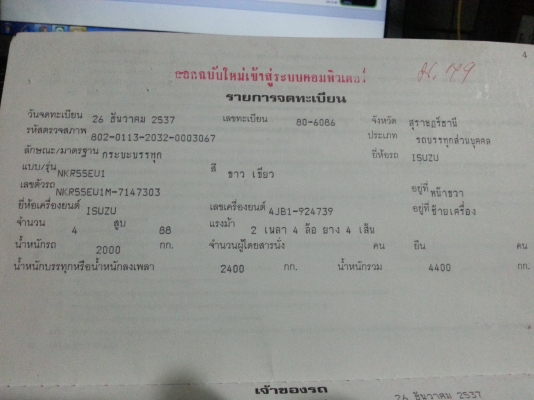 ออกฉบับใหม่เข้าสู่ระบบคอมพิวเตอร์
4
รายการจดทะเบียน
วันจดทะเบียน 26 ธันวาคม 2537 เลขทะเบียน 80-6086 จังหวัด สุราษฎร์ธานี
รหัสตรวจสภาพ 802-0113-2032-0003067 ประเภท รถบรรทุกส่วนบุคคล
ลักษณะ/มาตรฐาน กระบะบรรทุก ยี่ห้อรถ ISUZU
แบบ/รุ่น NKR55EU1 สี ขาว เขียว
เลขตัวรถ NKR55EU1M-7147303 อยู่ที่ หน้าขวา
ยี่ห้อเครื่องยนต์ ISUZU เลขเครื่องยนต์ 4JB1-924739 อยู่ที่ ซ้ายเครื่อง
จำนวน 4 สูบ 88 แรงม้า 2 เพลา 4 ล้อ ยาง 4 เส้น
น้ำหนักรถ 2000 กก. จำนวนผู้โดยสารนั่ง คน ยืน คน
น้ำหนักบรรทุกหรือน้ำหนักลงเพลา 2400 กก. น้ำหนักรวม 4400 กก.
เจ้าของรถ
26 ธันวาคม 2537